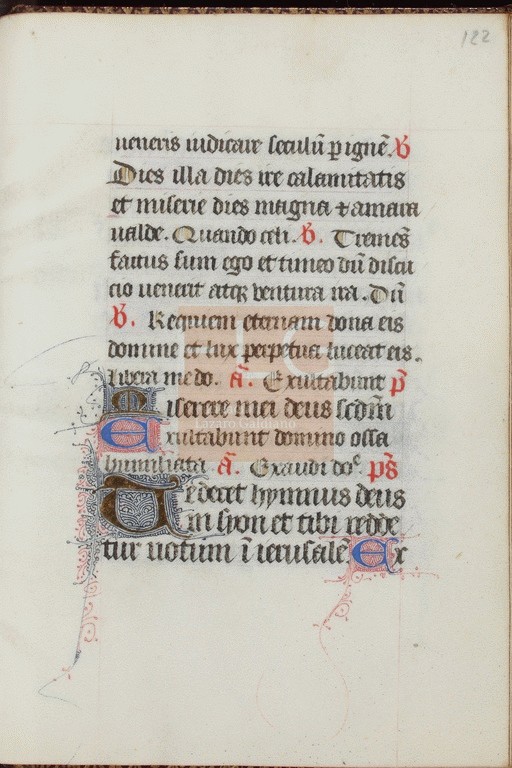 122
ueneris iudicare seculū p ignē. V̄
Dies illa dies ire calamitatis
et miserie dies magna ⁊ amara
ualde. Quando celi. V̄. Tremēs
factus sum ego et timeo dū discu
cio uenerit atqꝫ uentura ira. Dū
V̄. Requiem eternam dona eis
domine et lux perpetua luceat eis.
Libera me do. ā. Exultabunt p̄
Miserere mei deus scdm̄
Exultabunt domino ossa
humiliata ā. Exaudi doᵉ. ps̄
Te decet hymnus deus
in syon et tibi redde
tur uotum ī ierusalē. Ex
LG
Lázaro Galdiano